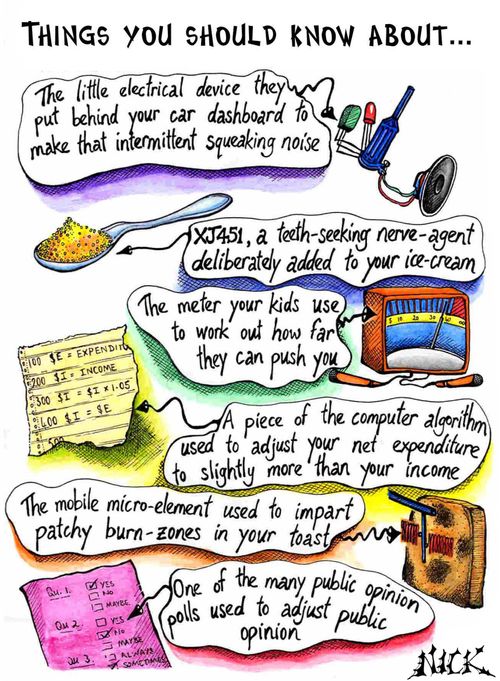 THINGS YOU SHOULD KNOW ABOUT...
The little electrical device they
put behind your car dashboard to
make that intermittent squeaking noise
XJ451, a teeth-seeking nerve-agent
deliberately added to your ice-cream
The meter your kids use
to work out how far
they can push you
10 20 30
100 $E = EXPENDITU
200 $I = INCOME
300 $I = $I x 1.05
400 $I = $E
500
A piece of the computer algorithm
used to adjust your net expenditure
to slightly more than your income
The mobile micro-element used to impart
patchy burn-zones in your toast
Qu. 1. YES
NO
MAYBE
Qu 2 YES
NO
MAYBE
Qu 3. ALWAYS
SOMETIMES
One of the many public opinion
polls used to adjust public
opinion
NICK